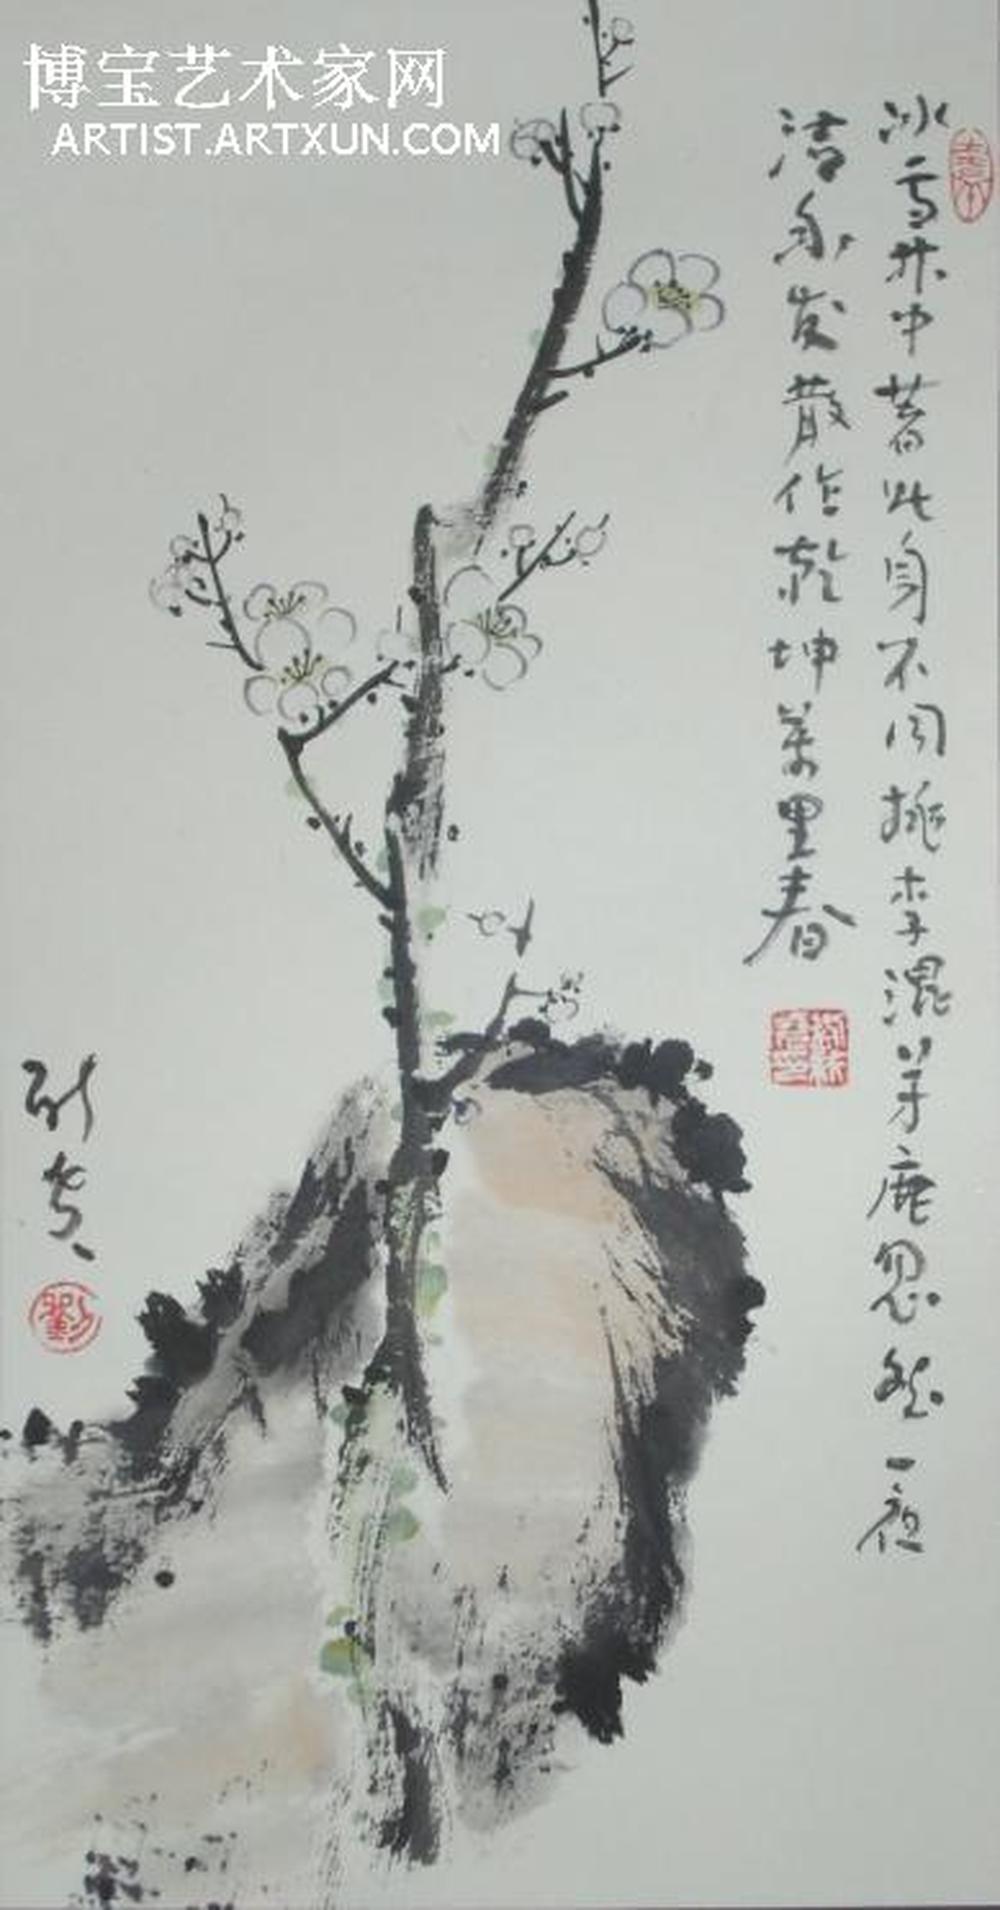 博宝艺术家网
ARTIST.ARTXUN.COM
冰雪林中著此身不同桃李混芳塵忽然一夜
清香发散作乾坤萬里春
劉